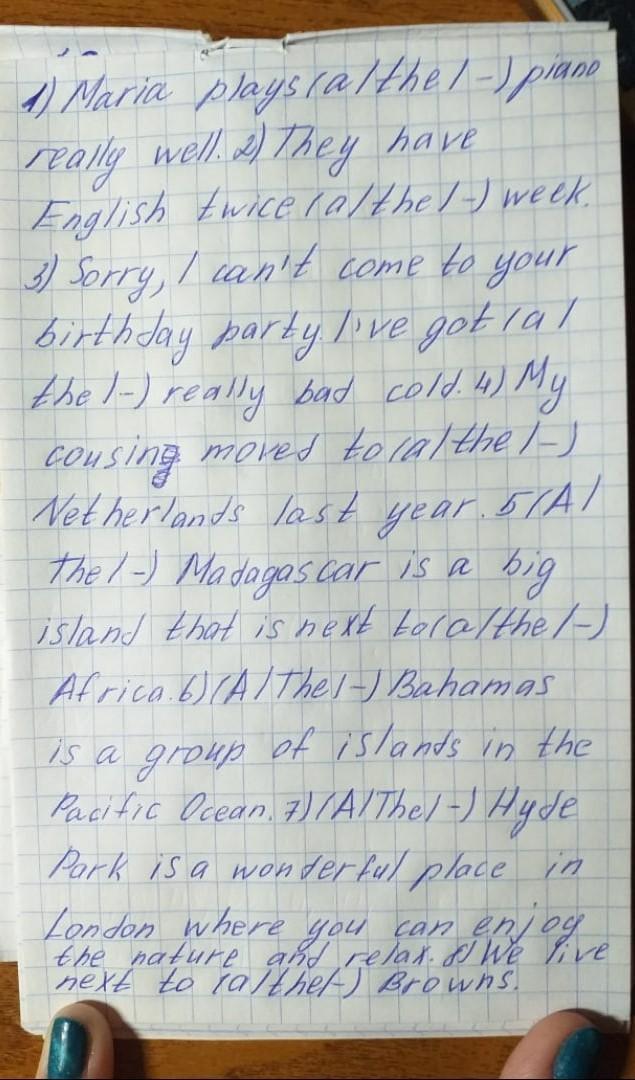 1) Maria plays (a/the/-) piano
really well. 2) They have
English twice (a/the/-) week.
3) Sorry, I can't come to your
birthday party. I've got (a/
the/-) really bad cold. 4) My
cousing moved to (a/the/-)
Netherlands last year. 5(A/
The/-) Madagascar is a big
island that is next to (a/the/-)
Africa. 6) (A/The/-) Bahamas
is a group of islands in the
Pacific Ocean. 7) (A/The/-) Hyde
Park is a wonderful place in
London where you can enjoy
the nature and relax. 8) We live
next to (a/the/-) Browns.